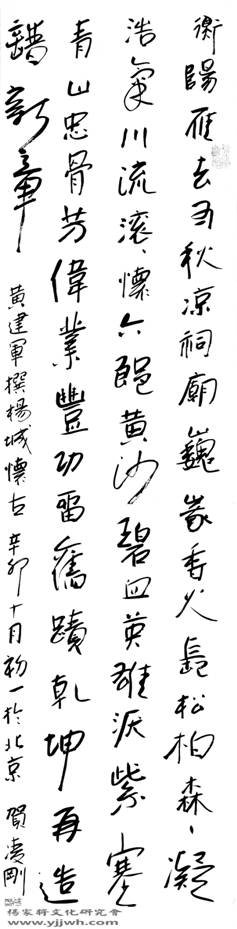 衡陽雁去又秋凉祠廟巍峩香火長松柏森、凝
浩氣川流滚、懷六郎黄沙碧血英雄淚紫塞
青山忠骨芳偉業豐功留舊蹟乾坤再造
譜新章
黄建軍撰楊城懷古 辛卯十月初一於北京 賀凌剛
楊家將文化研究會
www.yjjwh.com